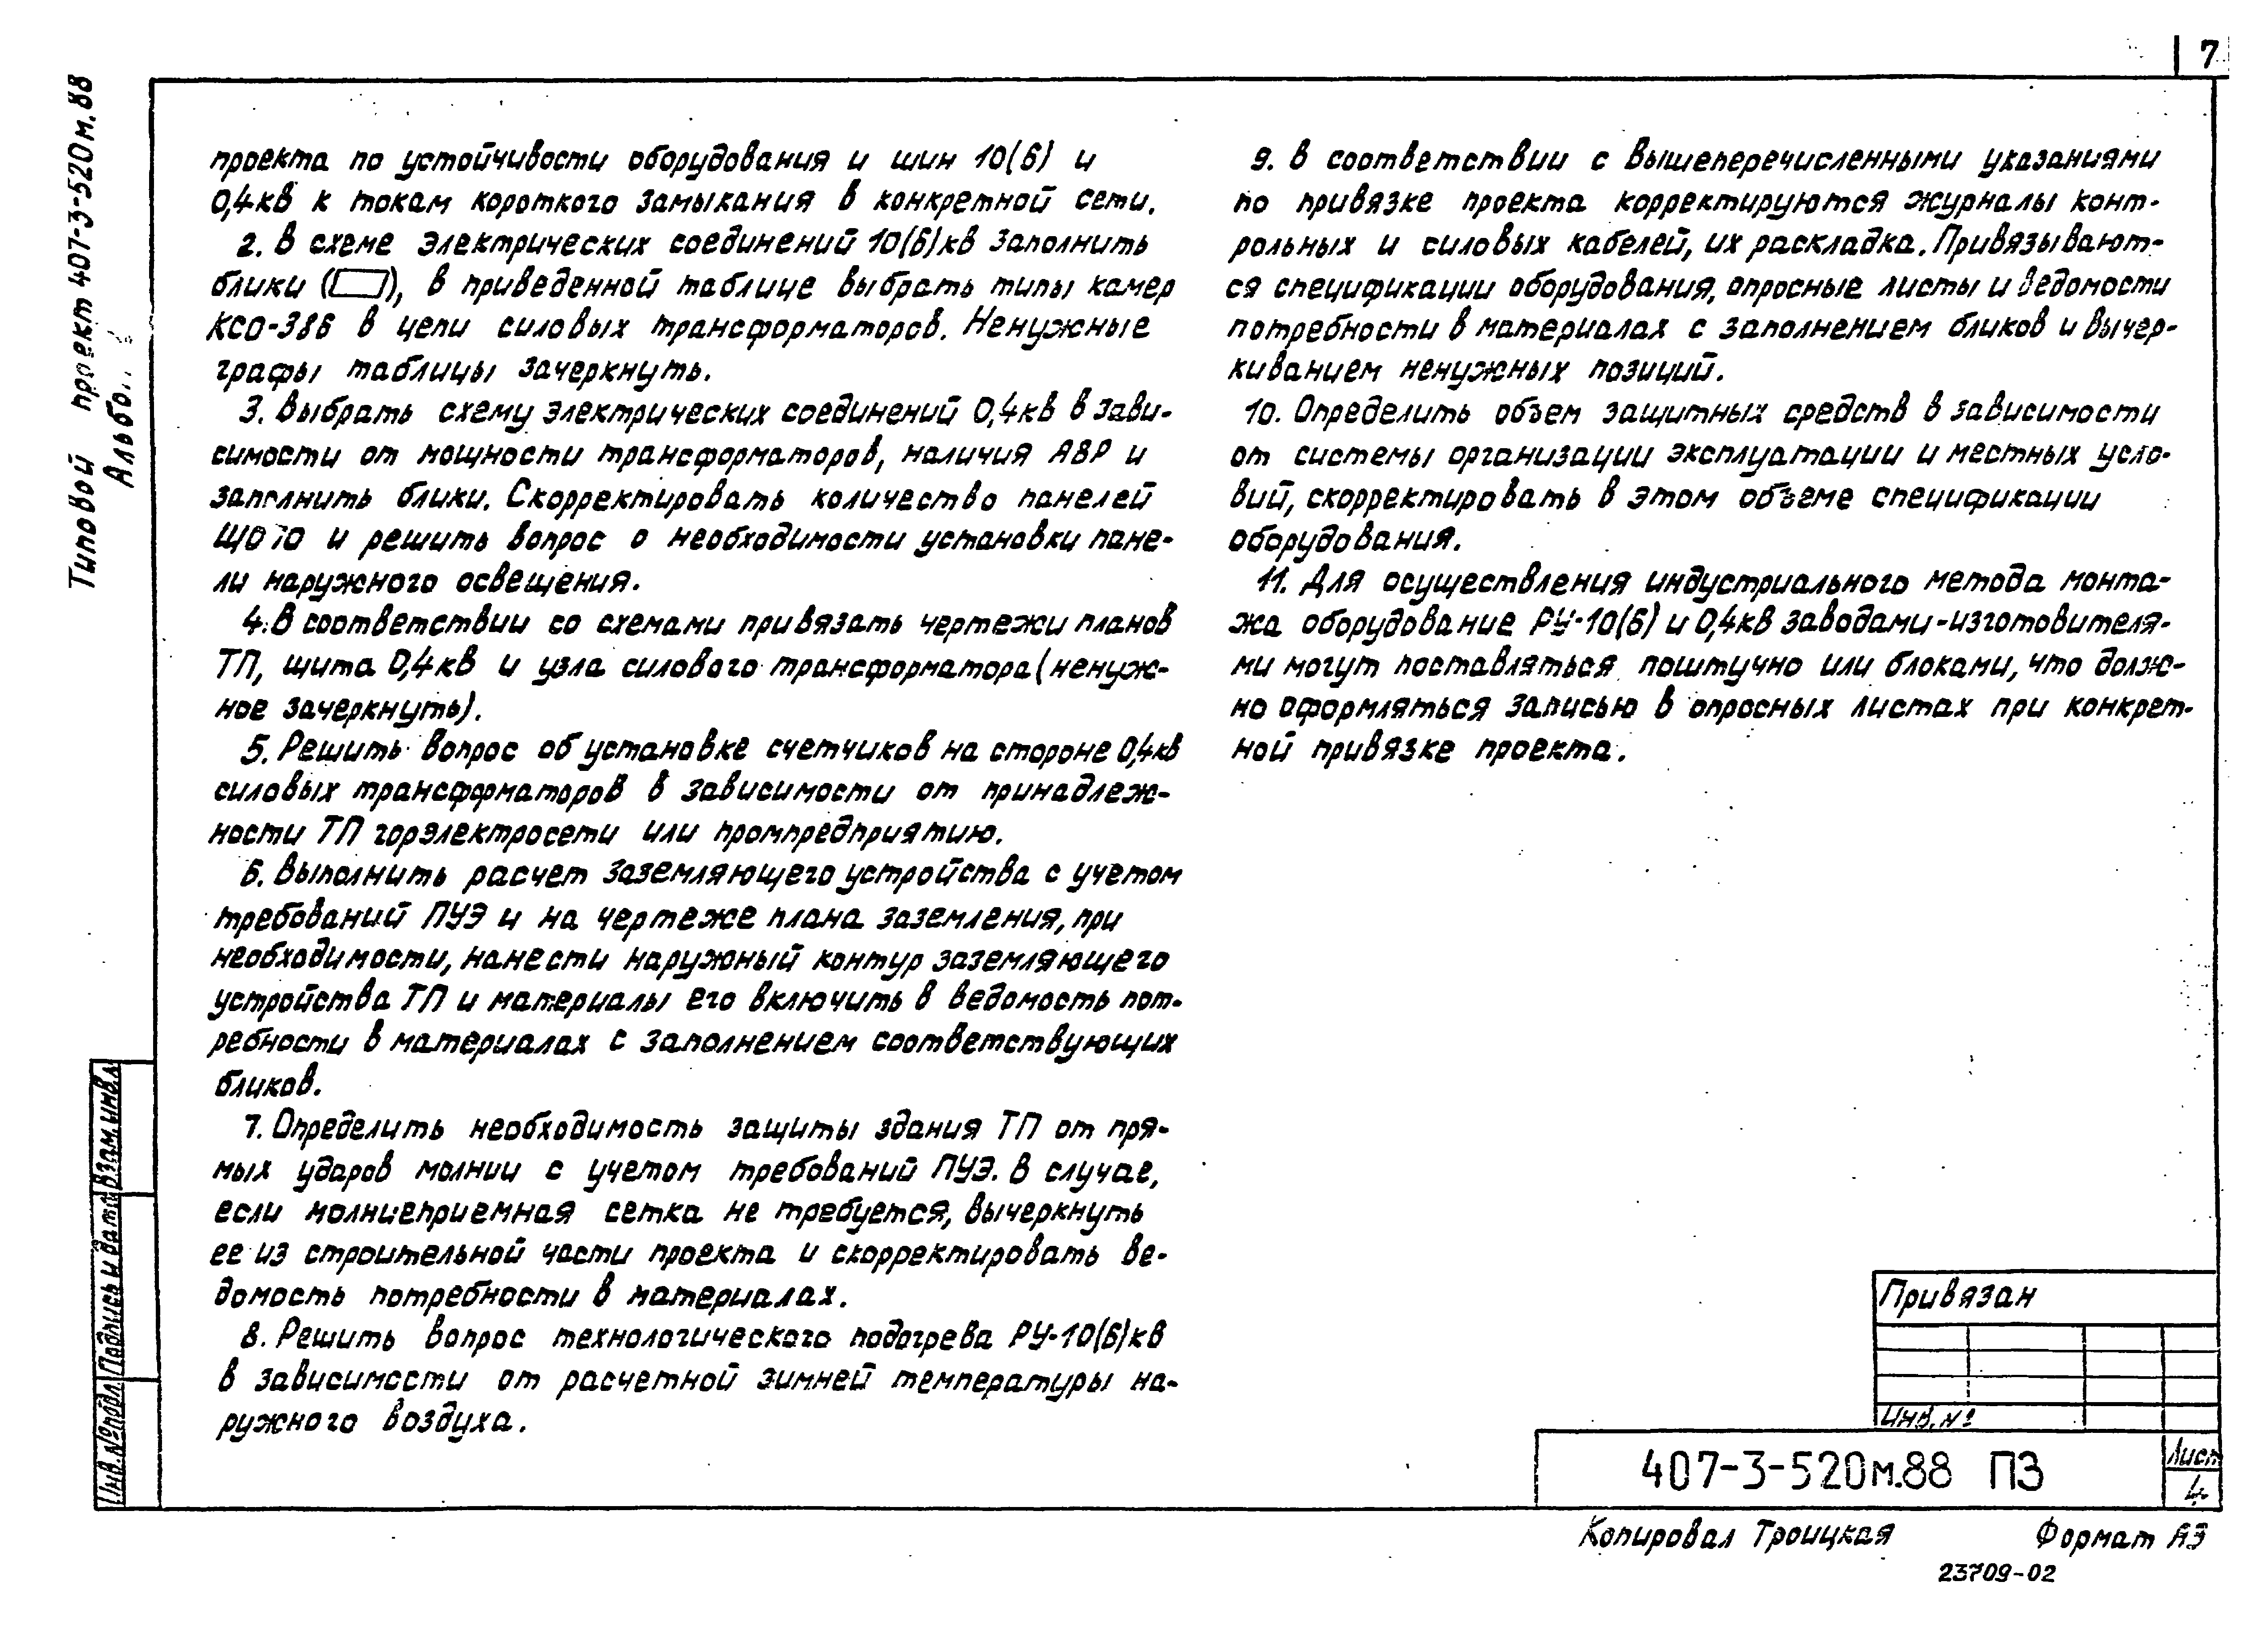 7
Типовой проект 407-3-520м.88
проекта по устойчивости оборудования и шин 10(6) и
0,4кв к токам короткого замыкания в конкретной сети.
2. В схеме электрических соединений 10(6)кв заполнить
блики ( ), в приведенной таблице выбрать типы камер
КСО-386 в цепи силовых трансформаторов. Ненужные
графы таблицы зачеркнуть.
3. Выбрать схему электрических соединений 0,4кв в зави-
симости от мощности трансформаторов, наличия АВР и
заполнить блики. Скорректировать количество панелей
ЩО70 и решить вопрос о необходимости установки пане-
ли наружного освещения.
4. В соответствии со схемами привязать чертежи планов
ТП, щита 0,4кв и узла силового трансформатора (ненуж-
ное зачеркнуть).
5. Решить вопрос об установке счетчиков на стороне 0,4кв
силовых трансформаторов в зависимости от принадлеж-
ности ТП горэлектросети или промпредприятию.
6. Выполнить расчет заземляющего устройства с учетом
требований ПУЭ и на чертеже плана заземления, при
необходимости, нанести наружный контур заземляющего
устройства ТП и материалы его включить в ведомость пот-
ребности в материалах с заполнением соответствующих
бликов.
7. Определить необходимость защиты здания ТП от пря-
мых ударов молнии с учетом требований ПУЭ. В случае,
если молниеприемная сетка не требуется, вычеркнуть
ее из строительной части проекта и скорректировать ве-
домость потребности в материалах.
8. Решить вопрос технологического подогрева РУ-10(6)кв
в зависимости от расчетной зимней температуры на-
ружного воздуха.
9. В соответствии с вышеперечисленными указаниями
по привязке проекта корректируются журналы конт-
рольных и силовых кабелей, их раскладка. Привязывают-
ся спецификации оборудования, опросные листы и ведомости
потребности в материалах с заполнением бликов и вычер-
киванием ненужных позиций.
10. Определить объем защитных средств в зависимости
от системы организации эксплуатации и местных усло-
вий, скорректировать в этом объеме спецификации
оборудования.
11. Для осуществления индустриального метода монта-
жа оборудование РУ-10(6) и 0,4кв заводами-изготовителя-
ми могут поставляться поштучно или блоками, что долж-
но оформляться записью в опросных листах при конкрет-
ной привязке проекта.
Взам.инв.
Подпись и дата
Инв.№подл
Привязан
Инв.№
407-3-520м.88 ПЗ
Лист
4
Копировал Троицкая
Формат А3
23709-02